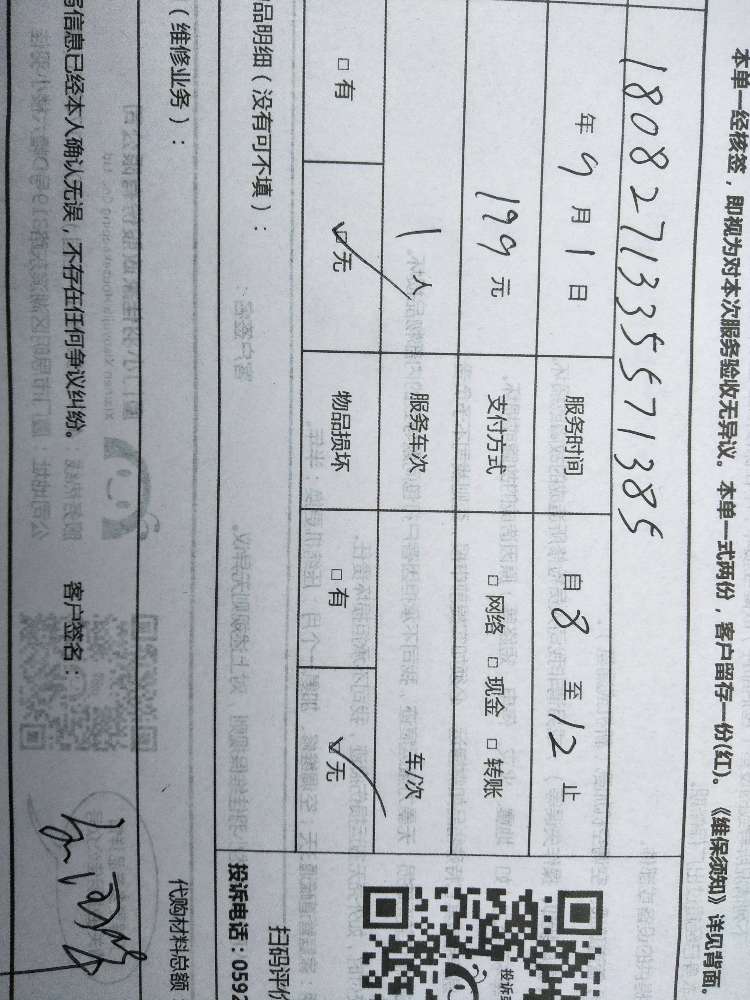 本单一经核签，即视为对本次服务验收无异议。本单一式两份，客户留存一份(红)。《维保须知》详见背面。
1808271335571385
年9月1日 服务时间 自8至12止
199元 支付方式 □网络 □现金 □转账
1人 服务车次 车/次
□有 ☑无 物品损坏 □有 ☑无
品明细（没有可不填）：
（维修业务）：
信息已经本人确认无误，不存在任何争议纠纷。 客户签名：
代购材料总额
扫码评价
投诉电话：0592
投诉